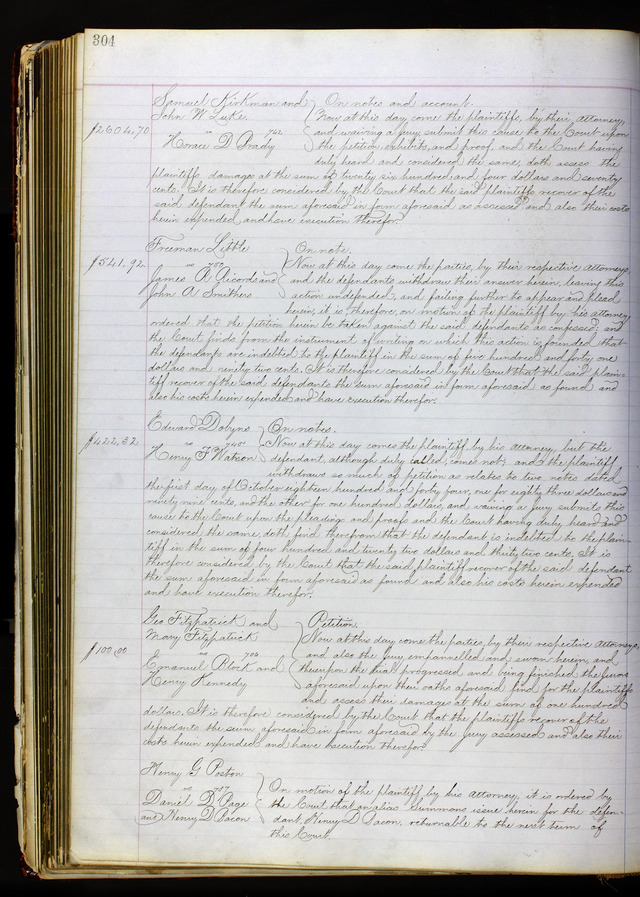 304
Samuel Kirkman and On notes and account.
John W. Luke. Now at this day come the plaintiffs, by their attorney,
$2604,70 vs 742 and waiving a jury, submit this cause to the Court upon
Horace D Brady the petition exhibits, and proof, and the Court having
duly heard and considered the same, doth assess the
plaintiffs damages at the sum of twenty six hundred and four dollars and seventy
cents. It is therefore considered by the Court that the said plaintiffs recover of the
said defendant the sum aforesaid in form aforesaid as assessed and also their costs
herein expended, and have execution therefor.
Freeman Little On note.
$541.92. vs 707 Now at this day come the parties, by their respective attorneys
James and and the defendants withdraw their answer herein, leaving this
John A Smithers action undefended, and failing further to appear and plead
herein, it is, therefore, on motion of the plaintiff by his attorney
ordered that the petition herein be taken against the said defendants as confessed; and
the Court finds from the instrument of writing on which this action is founded that
the defendants are indebted to the plaintiff in the sum of five hundred and forty one
dollars and ninety two cents. It is therefore considered by the Court that the said plain-
tiff recover of the said defendants the sum aforesaid in form aforesaid as found and
also his costs herein expended and have execution therefor.
Edward Dobyns On notes.
$422,32 vs 740 Now at this day comes the plaintiff by his attorney but the
Henry F Watson defendant, although duly called, comes not; and the plaintiff
withdraws so much of petition as relates to two notes dated
the first day of October eighteen hundred and forty four, one for eighty three dollars and
ninety nine cents, and the other for one hundred dollars, and waiving a jury submits this
cause to the Court upon the pleadings and proofs and the Court having duly heard and
considered the same doth find therefrom that the defendant is indebted to the plain-
tiff in the sum of four hundred and twenty two dollars and thirty two cents. It is
therefore considered by the Court that the said plaintiff recover of the said defendant
the sum aforesaid in form aforesaid as found and also his costs herein expended
and have execution therefor.
Geo Fitzpatrick and Petition.
Mary Fitzpatrick Now at this day come the parties, by their respective attorneys,
$100,00 vs 704 and also the jury empannelled and sworn herein, and
Emanuel Block and thereupon the trial progressed and being finished the jurors
Henry Kennedy aforesaid upon their oaths aforesaid find for the plaintiffs
and assess their damages at the sum of one hundred
dollars. It is therefore considered by the Court that the plaintiffs recover of the
defendants the sum aforesaid in form aforesaid by the jury assessed and also their
costs herein expended and have execution therefor.
Henry G Poston
vs 757 On motion of the plaintiff by his attorney, it is ordered by
Daniel D Page the Court that an alias summons issue herein for the defen-
and Henry D Bacon dant, Henry D Bacon, returnable to the next term of
this Court.